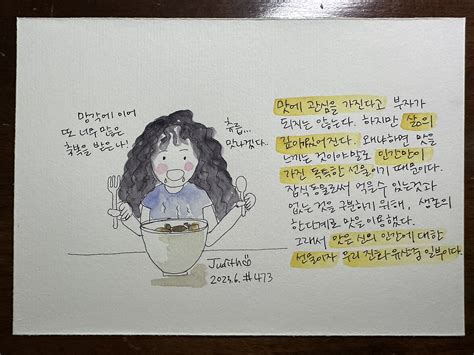 망각에 이어
또 너무 많은
축복을 받은 나!
츄릅...
맛나겠다.
Judith
2023.6. #473
맛에 관심을 가진다고 부자가
되지는 않는다. 하지만 삶의
깊이있어진다. 왜냐하면 맛을
느끼는 것이야말로 인간만이
가진 독특한 선물이기 때문이다.
잡식동물로써 먹을 수 있는것과
없는 것을 구분하기 위해, 생존의
한 단계로 맛을 이용했다.
그래서 맛은 신의 인간에 대한
선물이자 우리 진화 유산의 일부이다.